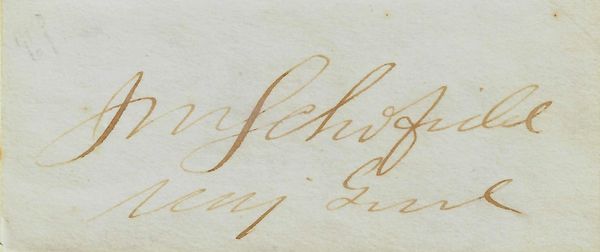 JM Schofield
Maj Genl